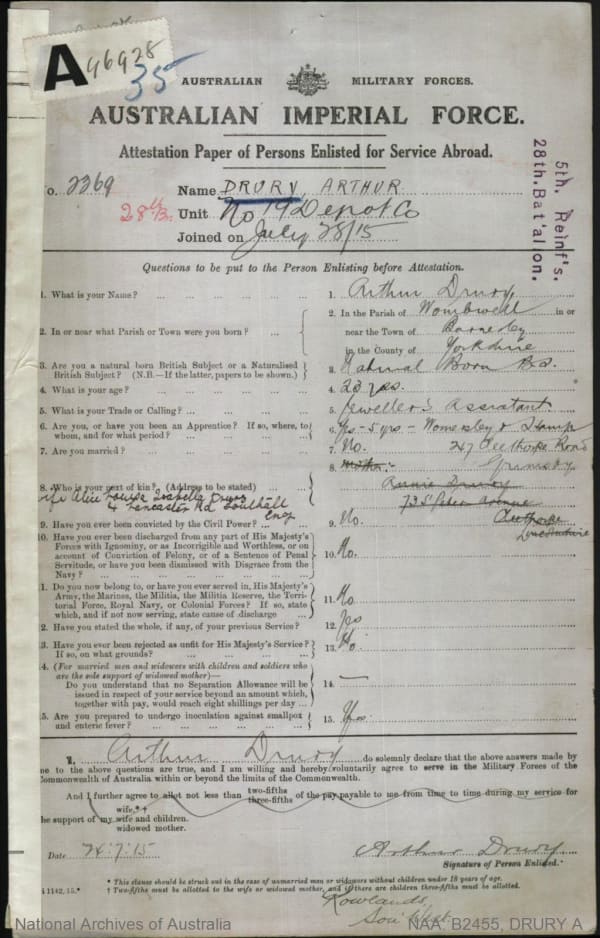 A 46928
35
AUSTRALIAN MILITARY FORCES.
AUSTRALIAN IMPERIAL FORCE.
Attestation Paper of Persons Enlisted for Service Abroad.
5th. Reinf's.
28th. Bat'alion.
No. 2369 Name DRURY, ARTHUR
28th/B. Unit No 19 Depot Co
Joined on July 28/15
Questions to be put to the Person Enlisting before Attestation.
1. What is your Name? ... 1. Arthur Drury.
2. In or near what Parish or Town were you born? ... 2. In the Parish of Wombwell in or
near the Town of Barnsley
in the County of Yorkshire
3. Are you a natural born British Subject or a Naturalised
British Subject? (N.B.—If the latter, papers to be shown.) 3. Natural Born B.S.
4. What is your age? ... 4. 23 yrs.
5. What is your Trade or Calling? ... 5. Jeweller's Assistant
6. Are you, or have you been an Apprentice? If so, where, to
whom, and for what period? ... 6. Yes - 5 yrs - Womersley &
7. Are you married? ... 7. No. 247 Cleethorpe Road
8. mother:- Grimsby
8. Who is your next of kin? (Address to be stated) Annie Drury
wife Alice Louisa Isabella Drury 73 St Peters Avenue
4 Lancaster Rd Southall Cleethorpe
Eng Lincolnshire
9. Have you ever been convicted by the Civil Power? ... 9. No.
10. Have you ever been discharged from any part of His Majesty's
Forces with Ignominy, or as Incorrigible and Worthless, or on
account of Conviction of Felony, or of a Sentence of Penal
Servitude, or have you been dismissed with Disgrace from the
Navy? ... 10. No.
1. Do you now belong to, or have you ever served in, His Majesty's
Army, the Marines, the Militia, the Militia Reserve, the Terri-
torial Force, Royal Navy, or Colonial Forces? If so, state
which, and if not now serving, state cause of discharge 11. No
2. Have you stated the whole, if any, of your previous Service? 12. Yes
3. Have you ever been rejected as unfit for His Majesty's Service?
If so, on what grounds? ... 13. No
4. (For married men and widowers with children and soldiers who
are the sole support of widowed mother)—
Do you understand that no Separation Allowance will be
issued in respect of your service beyond an amount which,
together with pay, would reach eight shillings per day ... 14. —
5. Are you prepared to undergo inoculation against smallpox
and enteric fever? ... 15. Yes.
I, Arthur Drury do solemnly declare that the above answers made by
me to the above questions are true, and I am willing and hereby voluntarily agree to serve in the Military Forces of the
Commonwealth of Australia within or beyond the limits of the Commonwealth.
And I further agree to allot not less than two-fifths
three-fifths of the pay payable to me from time to time during my service for
the support of my wife,*†
wife and children.
widowed mother.
Date 24.7.15 Arthur Drury
Signature of Person Enlisted.
1142, 15.* * This clause should be struck out in the case of unmarried men or widowers without children under 18 years of age.
† Two-fifths must be allotted to the wife or widowed mother, and if there are children three-fifths must be allotted.
Rowlands,
National Archives of Australia NAA: B2455, DRURY A